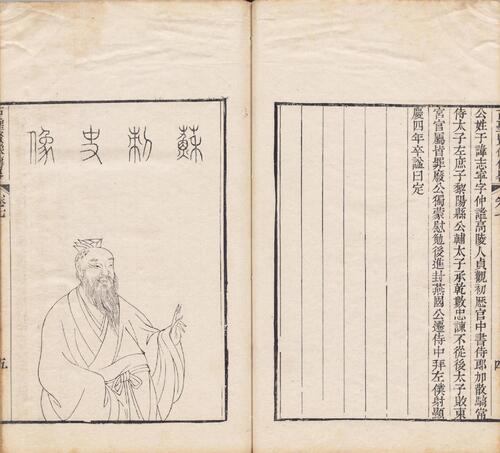 公姓于諱志寧字仲謐高陵人貞觀初歷官中書侍郎加散騎常
侍太子左庶子黎陽縣公輔太子承乾數忠諫不從後太子敗東
宮官屬皆罪廢公獨蒙慰勉後進封燕國公遷侍中拜左僕射顯
慶四年卒諡曰定
四
蘇刺史像
卷七
五